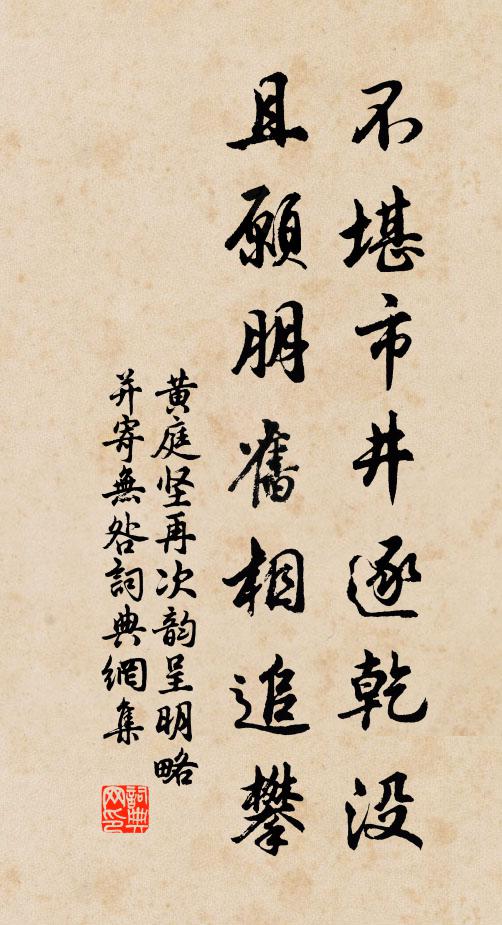 不堪市井逐乾没
且願朋舊相追攀
黄庭坚再次韵呈明略
并寄無咎詞典網集
詞典
网印